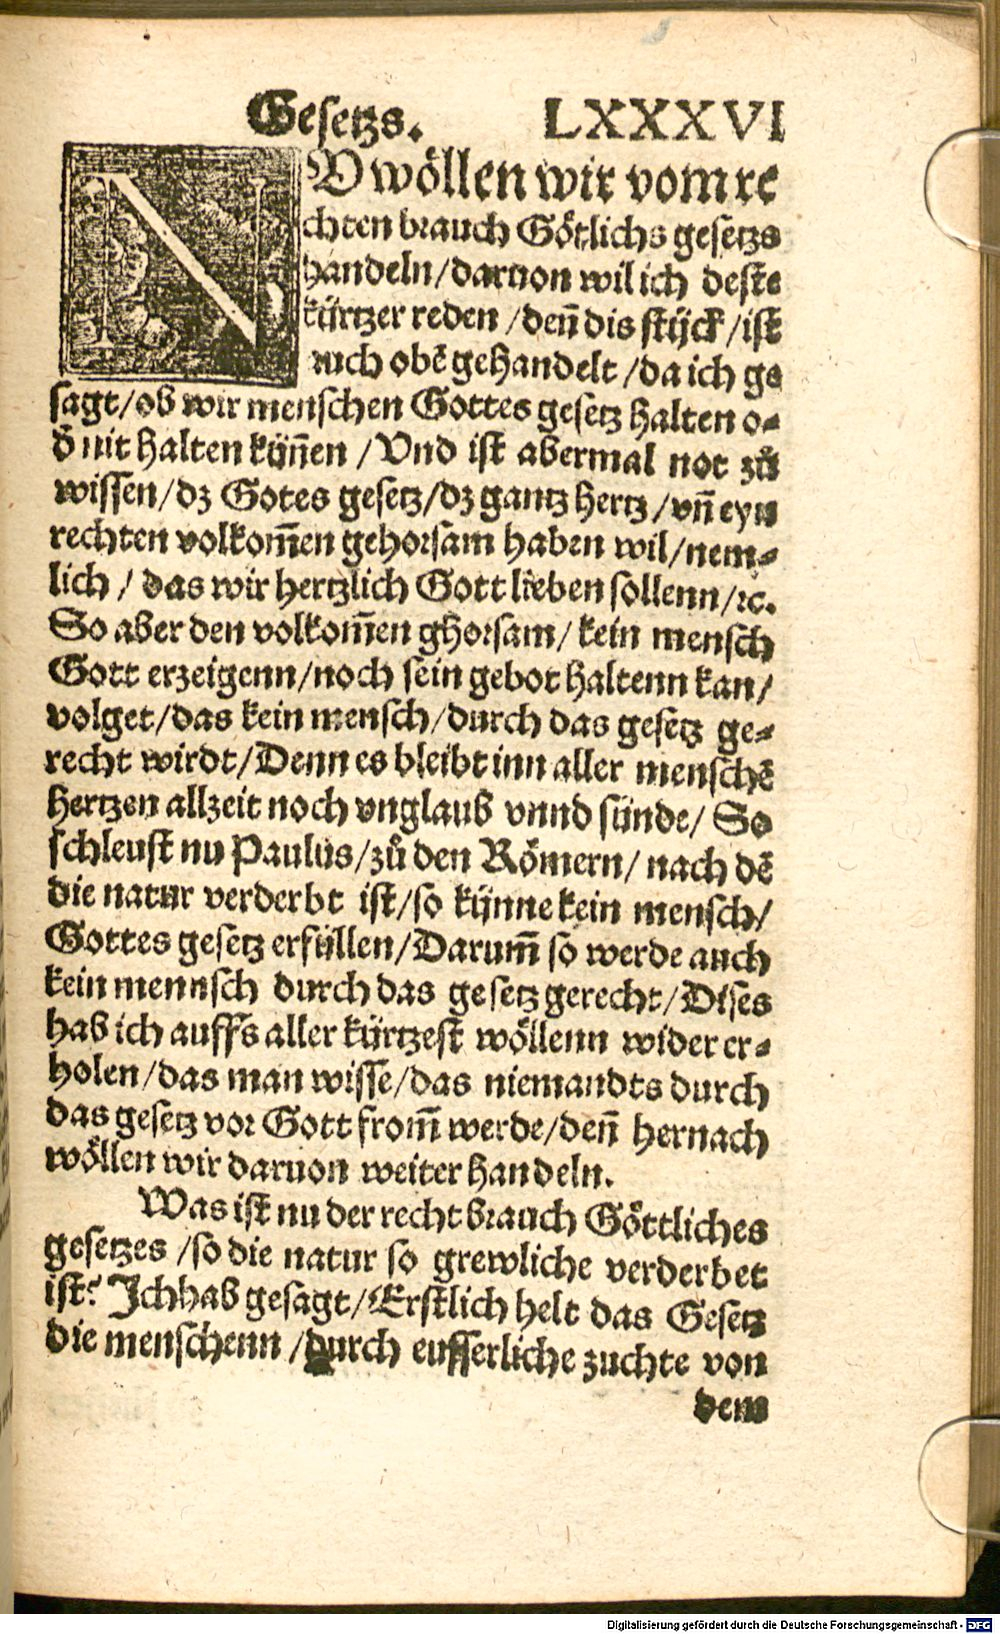 Gesetzs. LXXXVI
NV wöllen wir vom re
chten brauch Götlichs gesetzs
handeln/daruon wil ich deste
kürtzer reden/deñ dis stück/ist
auch obē gehandelt/da ich ge
sagt/ob wir menschen Gottes gesetz halten o-
d̄ nit halten küñen/Vnd ist abermal not zů
wissen/dz Gotes gesetz/dz gantz hertz/vñ eyn
rechten volkom̄en gehorsam haben wil/nem-
lich/das wir hertzlich Gott lieben sollenn/ꝛc.
So aber den volkom̄en ghorsam/kein mensch
Gott erzeigenn/noch sein gebot haltenn kan/
volget/das kein mensch/durch das gesetz ge-
recht wirdt/Denn es bleibt inn aller menschē
hertzen allzeit noch vnglaub vnnd sünde/So
schleust nu Paulus/zů den Römern/nach dē
die natur verderbt ist/so künne kein mensch/
Gottes gesetz erfüllen/Darum̄ so werde auch
kein mennsch durch das gesetz gerecht/Dises
hab ich auffs aller kürtzest wöllenn wider er-
holen/das man wisse/das niemandts durch
das gesetz vor Gott from̄ werde/deñ hernach
wöllen wir daruon weiter handeln.
Was ist nu der recht brauch Göttliches
gesetzes/so die natur so grewliche verderbet
ist? Ich hab gesagt/Erstlich helt das Gesetz
die menschenn/durch eusserliche zuchte von
dem
Digitalisierung gefördert durch die Deutsche Forschungsgemeinschaft - DFG